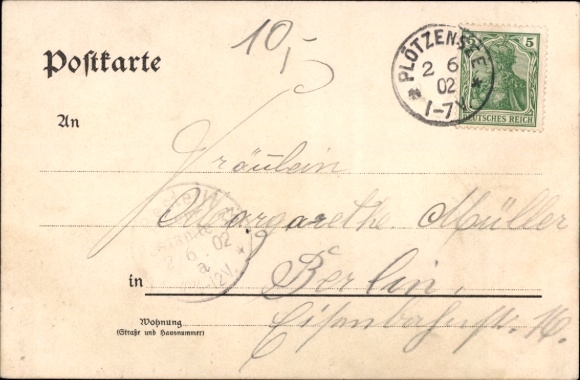 10,-
Postkarte
PLÖTZENSEE
2 6
02
1-7V
5
DEUTSCHES REICH
An
Fräulein
Margarethe Müller
2 6 02
in Berlin,
Wohnung
(Straße und Hausnummer)